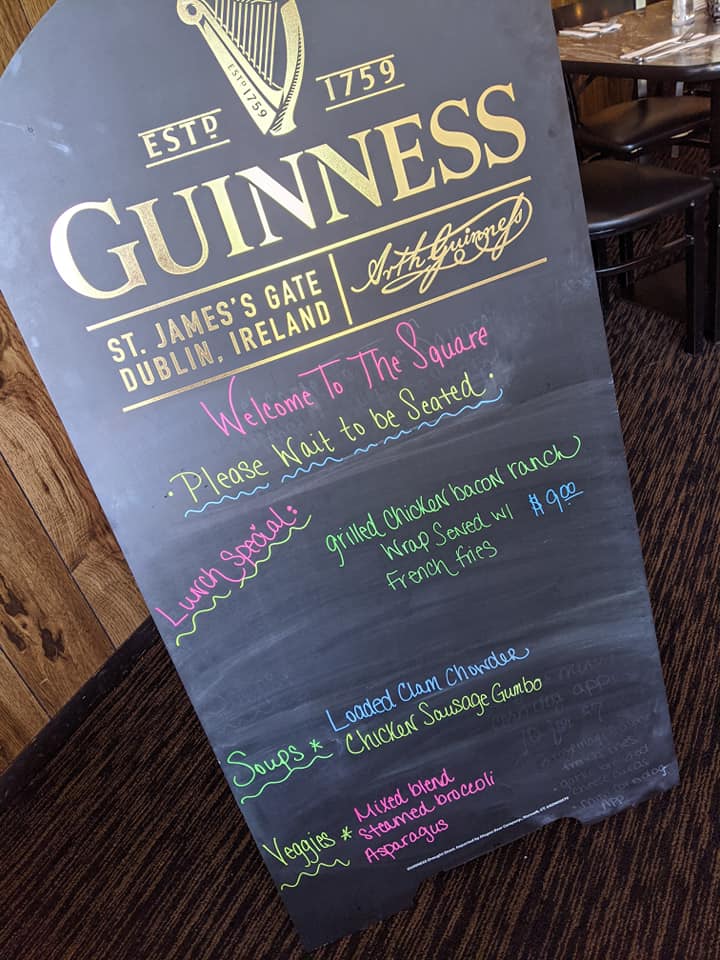 ESTD 1759
ESTD 1759
GUINNESS
ST. JAMES'S GATE
DUBLIN, IRELAND
Arth Guinness
Welcome To The Square
· Please Wait to be Seated ·
Lunch Special:
grilled chicken bacon ranch
Wrap Served w/ $9.00
French fries
Soups * Loaded Clam Chowder
Chicken Sausage Gumbo
Veggies * Mixed blend
Steamed broccoli
Asparagus